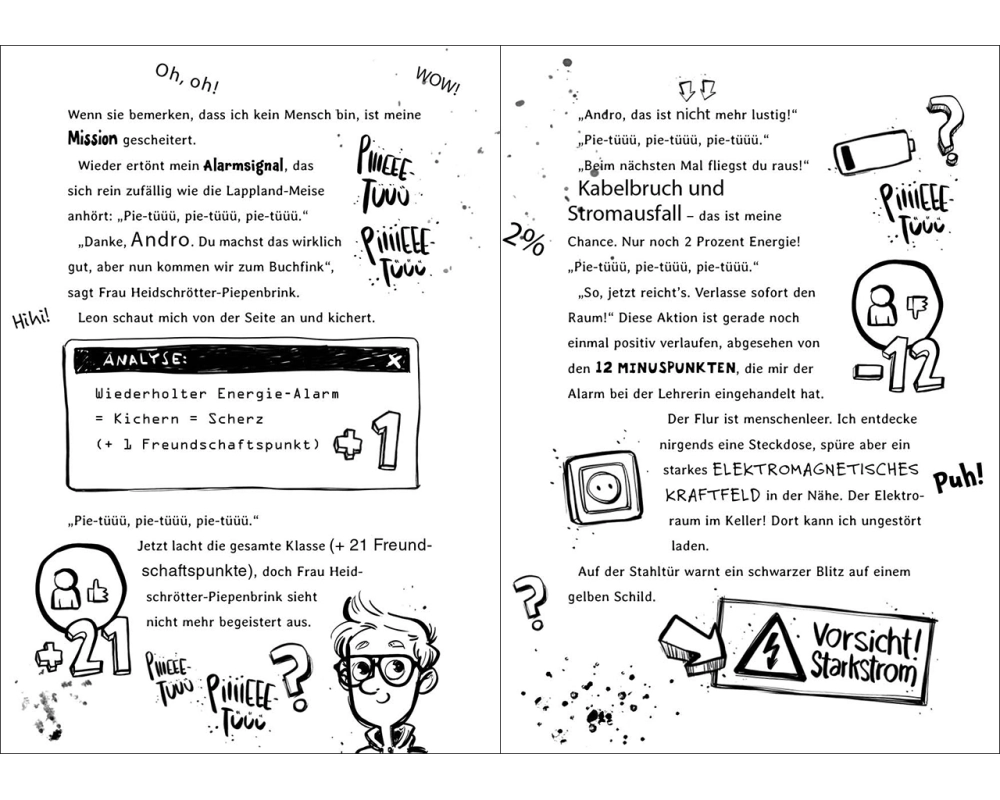 Oh, oh!
WOW!
Wenn sie bemerken, dass ich kein Mensch bin, ist meine
Mission gescheitert.
Wieder ertönt mein Alarmsignal, das
sich rein zufällig wie die Lappland-Meise
anhört: „Pie-tüüü, pie-tüüü, pie-tüüü.“
PIIIEEE-
TÜÜÜ
„Danke, Andro. Du machst das wirklich
gut, aber nun kommen wir zum Buchfink“,
sagt Frau Heidschrötter-Piepenbrink.
PIIIIEEE-
TÜÜÜ
Hihi!
Leon schaut mich von der Seite an und kichert.
ANALYSE:
X
Wiederholter Energie-Alarm
= Kichern = Scherz
(+ 1 Freundschaftspunkt)
+1
„Pie-tüüü, pie-tüüü, pie-tüüü.“
Jetzt lacht die gesamte Klasse (+ 21 Freund-
schaftspunkte), doch Frau Heid-
schrötter-Piepenbrink sieht
nicht mehr begeistert aus.
+21
PIIIEEE-
TÜÜÜ
PIIIIEEE-
TÜÜÜ
?
„Andro, das ist nicht mehr lustig!“
„Pie-tüüü, pie-tüüü, pie-tüüü.“
„Beim nächsten Mal fliegst du raus!“
?
Kabelbruch und
Stromausfall – das ist meine
Chance. Nur noch 2 Prozent Energie!
PIIIIEEE-
TÜÜÜ
2%
„Pie-tüüü, pie-tüüü, pie-tüüü.“
„So, jetzt reicht’s. Verlasse sofort den
Raum!“ Diese Aktion ist gerade noch
einmal positiv verlaufen, abgesehen von
den 12 MINUSPUNKTEN, die mir der
Alarm bei der Lehrerin eingehandelt hat.
-12
Der Flur ist menschenleer. Ich entdecke
nirgends eine Steckdose, spüre aber ein
starkes ELEKTROMAGNETISCHES
KRAFTFELD in der Nähe. Der Elektro-
raum im Keller! Dort kann ich ungestört
laden.
Puh!
Auf der Stahltür warnt ein schwarzer Blitz auf einem
gelben Schild.
?
Vorsicht!
Starkstrom